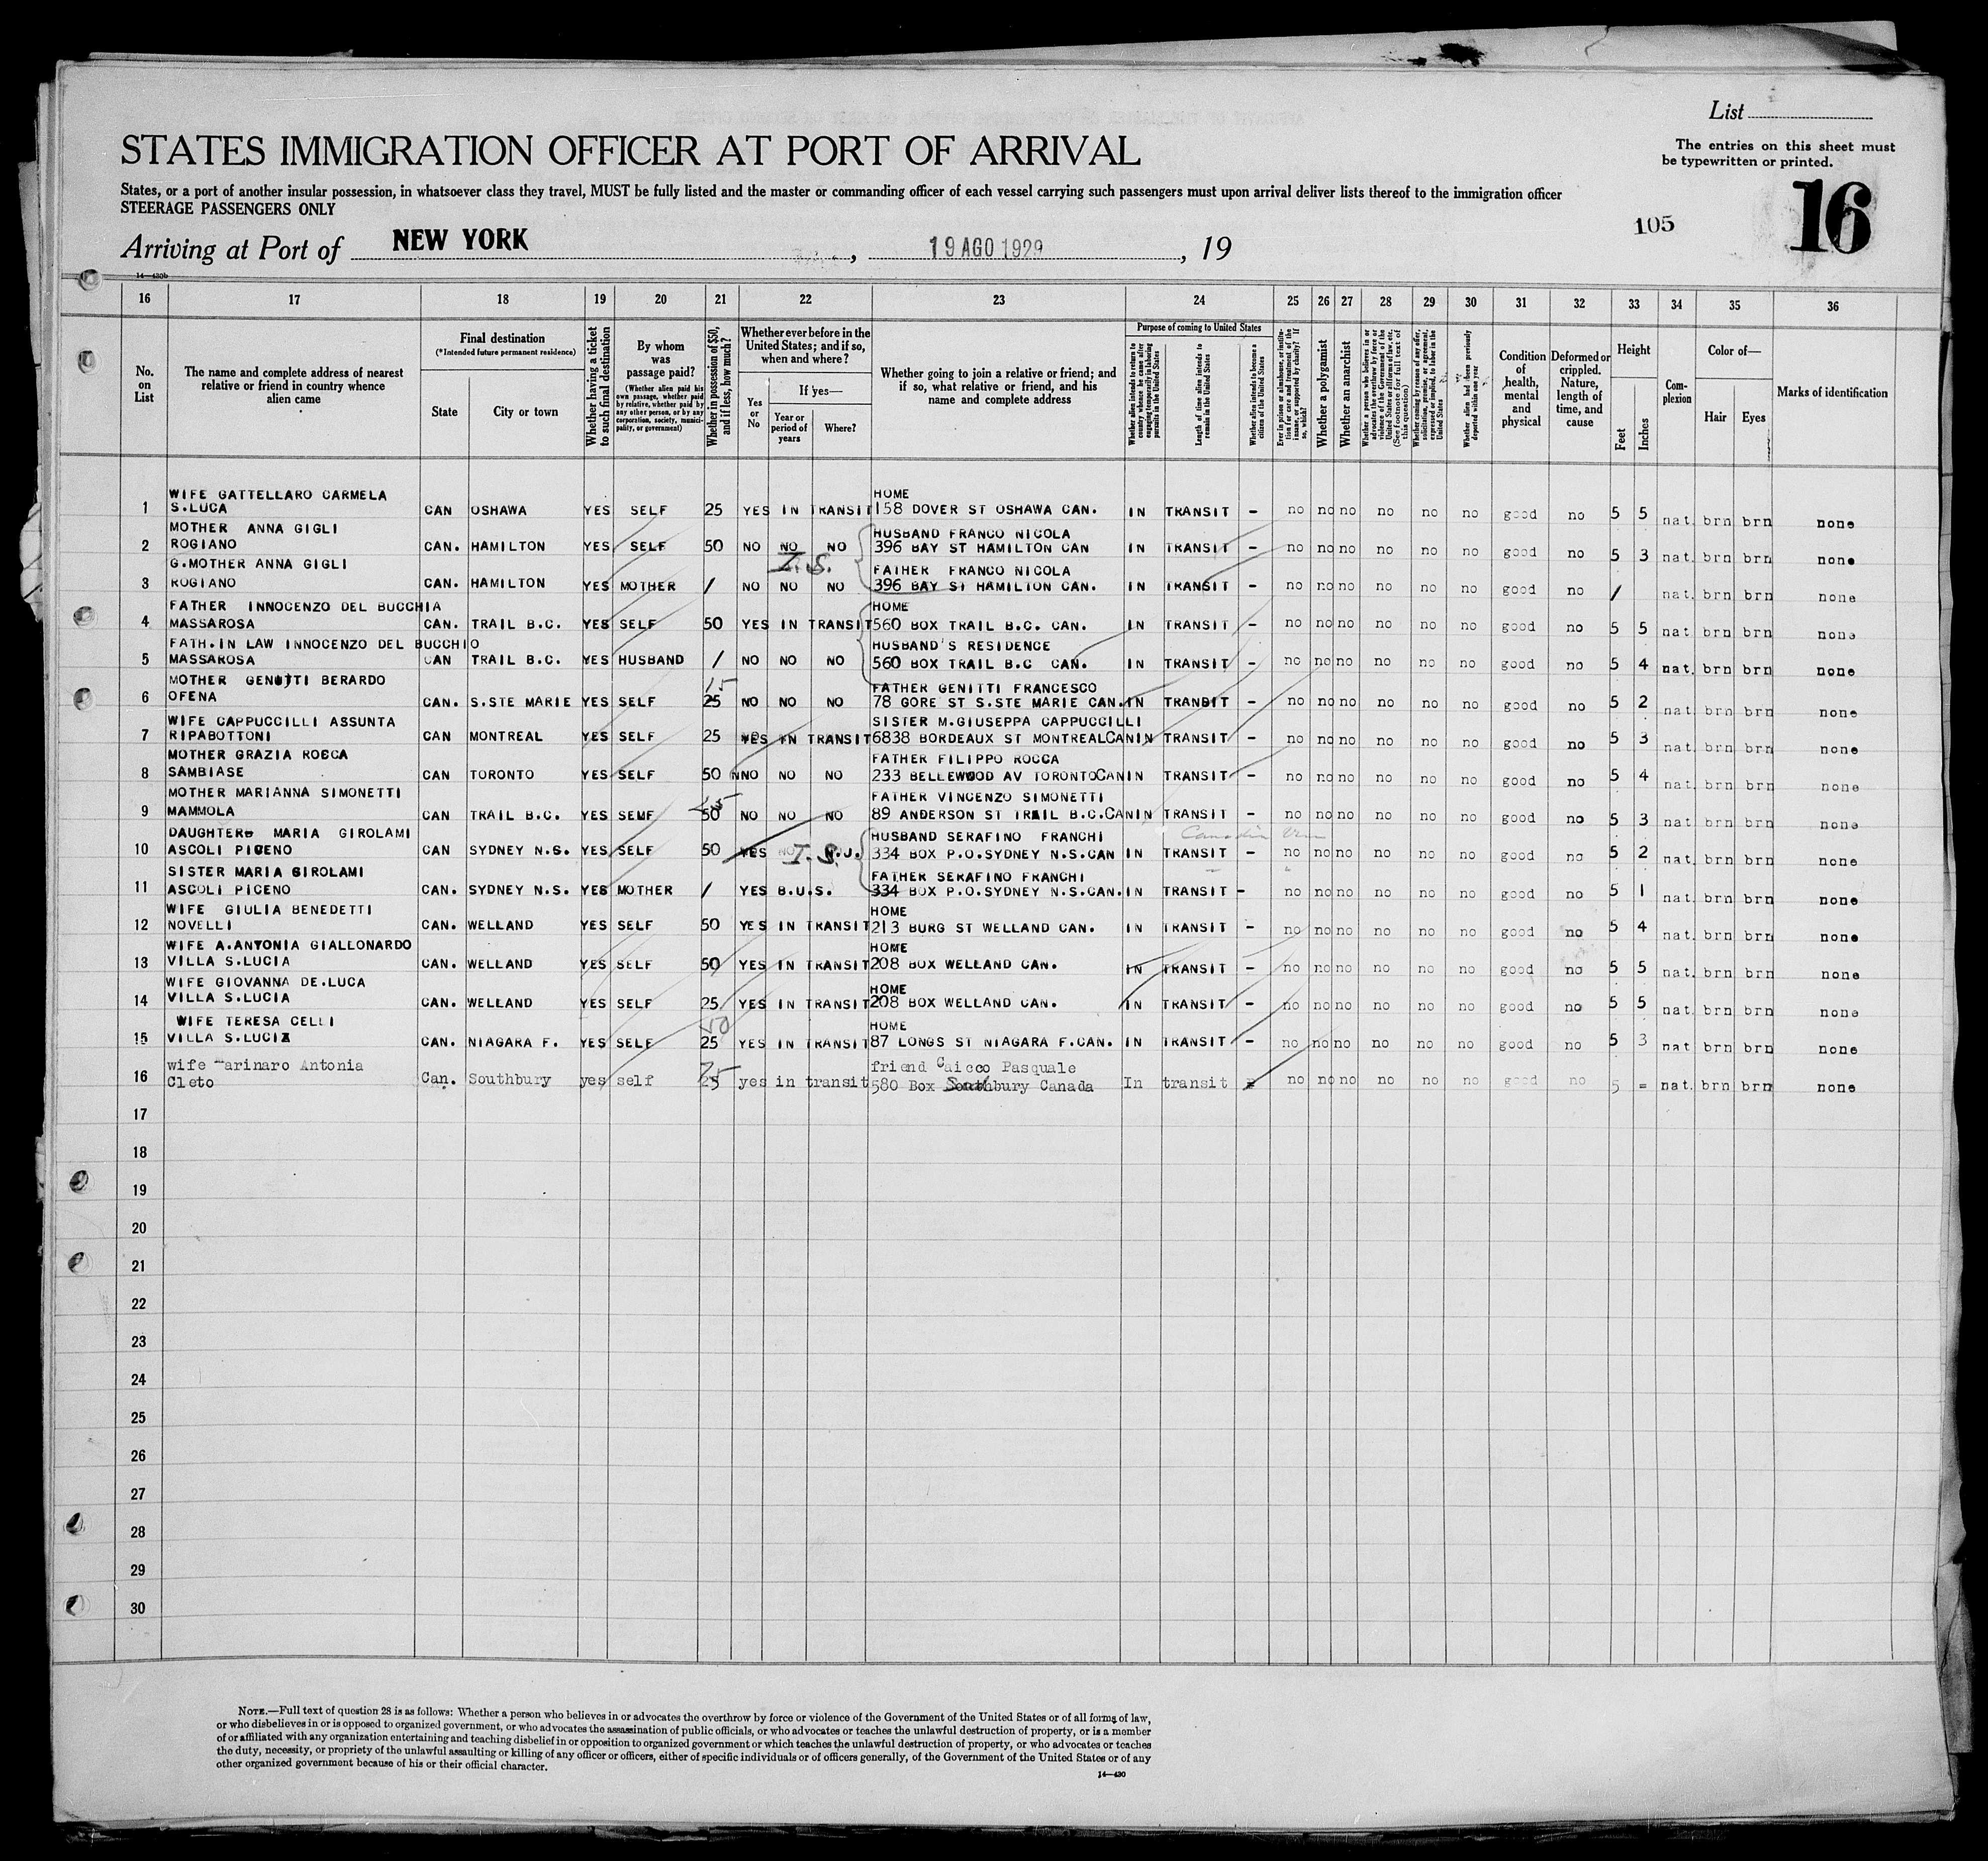 List
STATES IMMIGRATION OFFICER AT PORT OF ARRIVAL
The entries on this sheet must
be typewritten or printed.
States, or a port of another insular possession, in whatsoever class they travel, MUST be fully listed and the master or commanding officer of each vessel carrying such passengers must upon arrival deliver lists thereof to the immigration officer
STEERAGE PASSENGERS ONLY
105
16
Arriving at Port of NEW YORK , 19 AGO 1929 , 19
14—430b
16 17 18 19 20 21 22 23 24 25 26 27 28 29 30 31 32 33 34 35 36
No. on List
The name and complete address of nearest relative or friend in country whence alien came
Final destination
(*Intended future permanent residence)
State
City or town
Whether having a ticket to such final destination
By whom was passage paid?
(Whether alien paid his own passage, whether paid by relative, whether paid by any other person, or by any corporation, society, municipality, or government)
Whether in possession of $50, and if less, how much?
Whether ever before in the United States; and if so, when and where?
Yes or No
If yes—
Year or period of years
Where?
Whether going to join a relative or friend; and if so, what relative or friend, and his name and complete address
Purpose of coming to United States
Whether alien intends to return to country whence he came after engaging temporarily in laboring pursuits in the United States
Length of time alien intends to remain in the United States
Whether alien intends to become a citizen of the United States
Ever in prison or almshouse, or institution for care and treatment of the insane, or supported by charity? If so, which?
Whether a polygamist
Whether an anarchist
Whether a person who believes in or advocates the overthrow by force or violence of the Government of the United States or all forms of law, etc. (See footnote for full text of this question)
Whether coming by reason of any offer, solicitation, promise, or agreement, expressed or implied, to labor in the United States
Whether alien had been previously deported within one year
Condition of health, mental and physical
Deformed or crippled. Nature, length of time, and cause
Height
Feet
Inches
Complexion
Color of—
Hair
Eyes
Marks of identification
WIFE GATTELLARO CARMELA HOME
1 S.LUCA CAN OSHAWA YES SELF 25 YES IN TRANSIT 158 DOVER ST OSHAWA CAN. IN TRANSIT - no no no no no no good no 5 5 nat. brn brn none
MOTHER ANNA GIGLI HUSBAND FRANCO NICOLA
2 ROGIANO CAN. HAMILTON YES SELF 50 NO NO NO 396 BAY ST HAMILTON CAN IN TRANSIT - no no no no no no good no 5 3 nat. brn brn none
T.S.
G.MOTHER ANNA GIGLI FATHER FRANCO NICOLA
3 ROGIANO CAN. HAMILTON YES MOTHER / NO NO NO 396 BAY ST HAMILTON CAN. IN TRANSIT - no no no no no no good no / nat. brn brn none
FATHER INNOCENZO DEL BUCCHIA HOME
4 MASSAROSA CAN. TRAIL B.C. YES SELF 50 YES IN TRANSIT 560 BOX TRAIL B.C. CAN. IN TRANSIT - no no no no no no good no 5 5 nat. brn brn none
FATH.IN LAW INNOCENZO DEL BUCCHIO HUSBAND'S RESIDENCE
5 MASSAROSA CAN TRAIL B.C. YES HUSBAND / NO NO NO 560 BOX TRAIL B.C CAN. IN TRANSIT - no no no no no no good no 5 4 nat. brn brn none
MOTHER GENITTI BERARDO 15 FATHER GENITTI FRANCESCO
6 OFENA CAN. S.STE MARIE YES SELF 25 NO NO NO 78 GORE ST S.STE MARIE CAN. IN TRANSIT - no no no no no no good no 5 2 nat. brn brn none
WIFE CAPPUCCILLI ASSUNTA SISTER M.GIUSEPPA CAPPUCCILLI
7 RIPABOTTONI CAN MONTREAL YES SELF 25 YES IN TRANSIT 6838 BORDEAUX ST MONTREALCAN IN TRANSIT - no no no no no no good no 5 3 nat. brn brn none
MOTHER GRAZIA ROCCA FATHER FILIPPO ROCCA
8 SAMBIASE CAN TORONTO YES SELF 50 NO NO NO 233 BELLEWOOD AV TORONTOCAN IN TRANSIT - no no no no no no good no 5 4 nat. brn brn none
MOTHER MARIANNA SIMONETTI 25 FATHER VINCENZO SIMONETTI
9 MAMMOLA CAN TRAIL B.C. YES SELF 50 NO NO NO 89 ANDERSON ST TRAIL B.C.CAN IN TRANSIT - no no no no no no good no 5 3 nat. brn brn none
DAUGHTER MARIA GIROLAMI HUSBAND SERAFINO FRANCHI Canadian
10 ASCOLI PICENO CAN SYDNEY N.S. YES SELF 50 YES T.S. 334 BOX P.O.SYDNEY N.S.CAN IN TRANSIT - no no no no no no good no 5 2 nat. brn brn none
SISTER MARIA GIROLAMI FATHER SERAFINO FRANCHI
11 ASCOLI PICENO CAN. SYDNEY N.S. YES MOTHER / YES B.U.S. 334 BOX P.O.SYDNEY N.S.CAN. IN TRANSIT - no no no no no no good no 5 1 nat. brn brn none
WIFE GIULIA BENEDETTI HOME
12 NOVELLI CAN. WELLAND YES SELF 50 YES IN TRANSIT 213 BURG ST WELLAND CAN. IN TRANSIT - no no no no no no good no 5 4 nat. brn brn none
WIFE A.ANTONIA GIALLONARDO HOME
13 VILLA S.LUCIA CAN. WELLAND YES SELF 50 YES IN TRANSIT 208 BOX WELLAND CAN. IN TRANSIT - no no no no no no good no 5 5 nat. brn brn none
WIFE GIOVANNA DE.LUCA HOME
14 VILLA S.LUCIA CAN. WELLAND YES SELF 25 YES IN TRANSIT 208 BOX WELLAND CAN. IN TRANSIT - no no no no no no good no 5 5 nat. brn brn none
WIFE TERESA CELLI 50 HOME
15 VILLA S.LUCIA CAN. NIAGARA F. YES SELF 25 YES IN TRANSIT 87 LONGS ST NIAGARA F.CAN. IN TRANSIT - no no no no no no good no 5 3 nat brn brn none
wife Marinaro Antonia friend Caicco Pasquale
16 Cleto Can. Southbury yes self 25 yes in transit 580 Box Southbury Canada In transit no no no no no no good no 5 = nat. brn brn none
17
18
19
20
21
22
23
24
25
26
27
28
29
30
NOTE.—Full text of question 28 is as follows: Whether a person who believes in or advocates the overthrow by force or violence of the Government of the United States or of all forms of law,
or who disbelieves in or is opposed to organized government, or who advocates the assassination of public officials, or who advocates or teaches the unlawful destruction of property, or is a member
of or affiliated with any organization entertaining and teaching disbelief in or opposition to organized government or which teaches the unlawful destruction of property, or who advocates or teaches
the duty, necessity, or propriety of the unlawful assaulting or killing of any officer or officers, either of specific individuals or of officers generally, of the Government of the United States or of any
other organized government because of his or their official character.
14—430